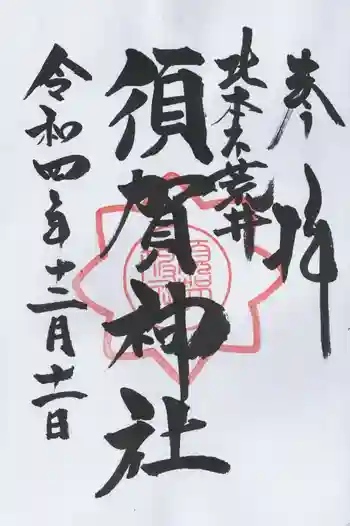 奉拝
北本不荒井
須賀神社
令和四年十二月十一日